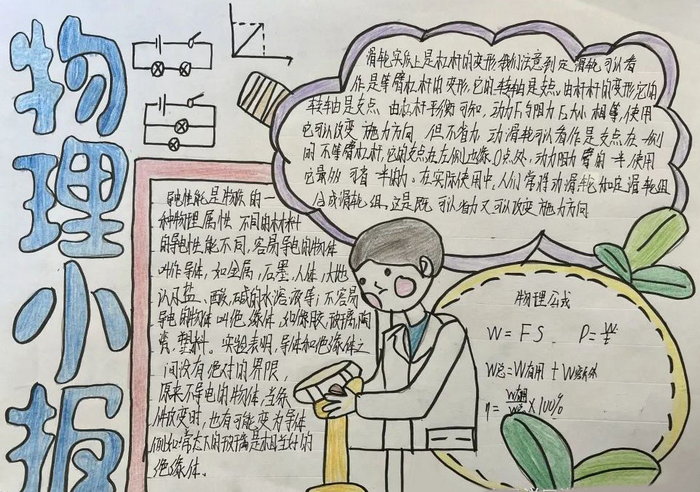 物理小报
滑轮实际上是杠杆的变形,我们注意到定滑轮可以看
作是等臂杠杆的变形,它的转轴是支点,由杠杆的变形它的
转轴是支点 由杠杆平衡可知,动力F1与阻力F2大小相等,使用
它可以改变 施力方向 但不省力 动滑轮可以看作是支点在一侧
的不等臂杠杆,它的支点在左侧边缘O点处,动力阻力臂的一半,使用
它最多 可省 一半的力,在实际使用中,人们常将动滑轮和定滑轮组
合成滑轮组,这是既可以省力又可以改变施力方向
导电性能是物质的一
种物理属性 不同的材料
的导电性能不同,容易导电的物体
叫作导体,如金属,石墨,人体,大地
以及盐、酸、碱的水溶液等;不容易
导电的物体叫绝缘体,如橡胶,玻璃,陶
瓷,塑料。实验表明,导体和绝缘体之
间没有绝对的界限,
原来不导电的物体,当条
件改变时,也有可能变为导体
例如常态下的玻璃是相当好的
绝缘体.
物理公式
W=FS P=W/t
W总=W有用+W额外
η=W有用/W总×100%